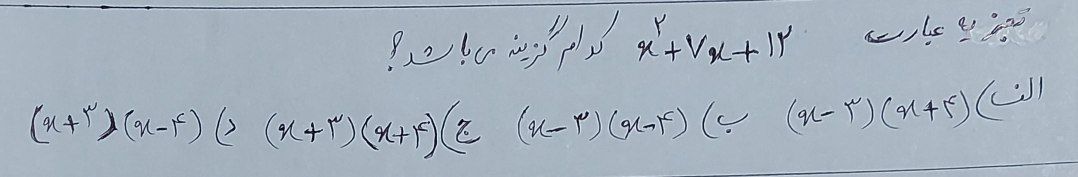 تجزیه عبارت x²+۷x+۱۲ کدام گزینه می باشد؟
الف) (x-۳)(x+۴) ب) (x-۳)(x-۴) ج) (x+۳)(x+۴) د) (x+۳)(x-۴)